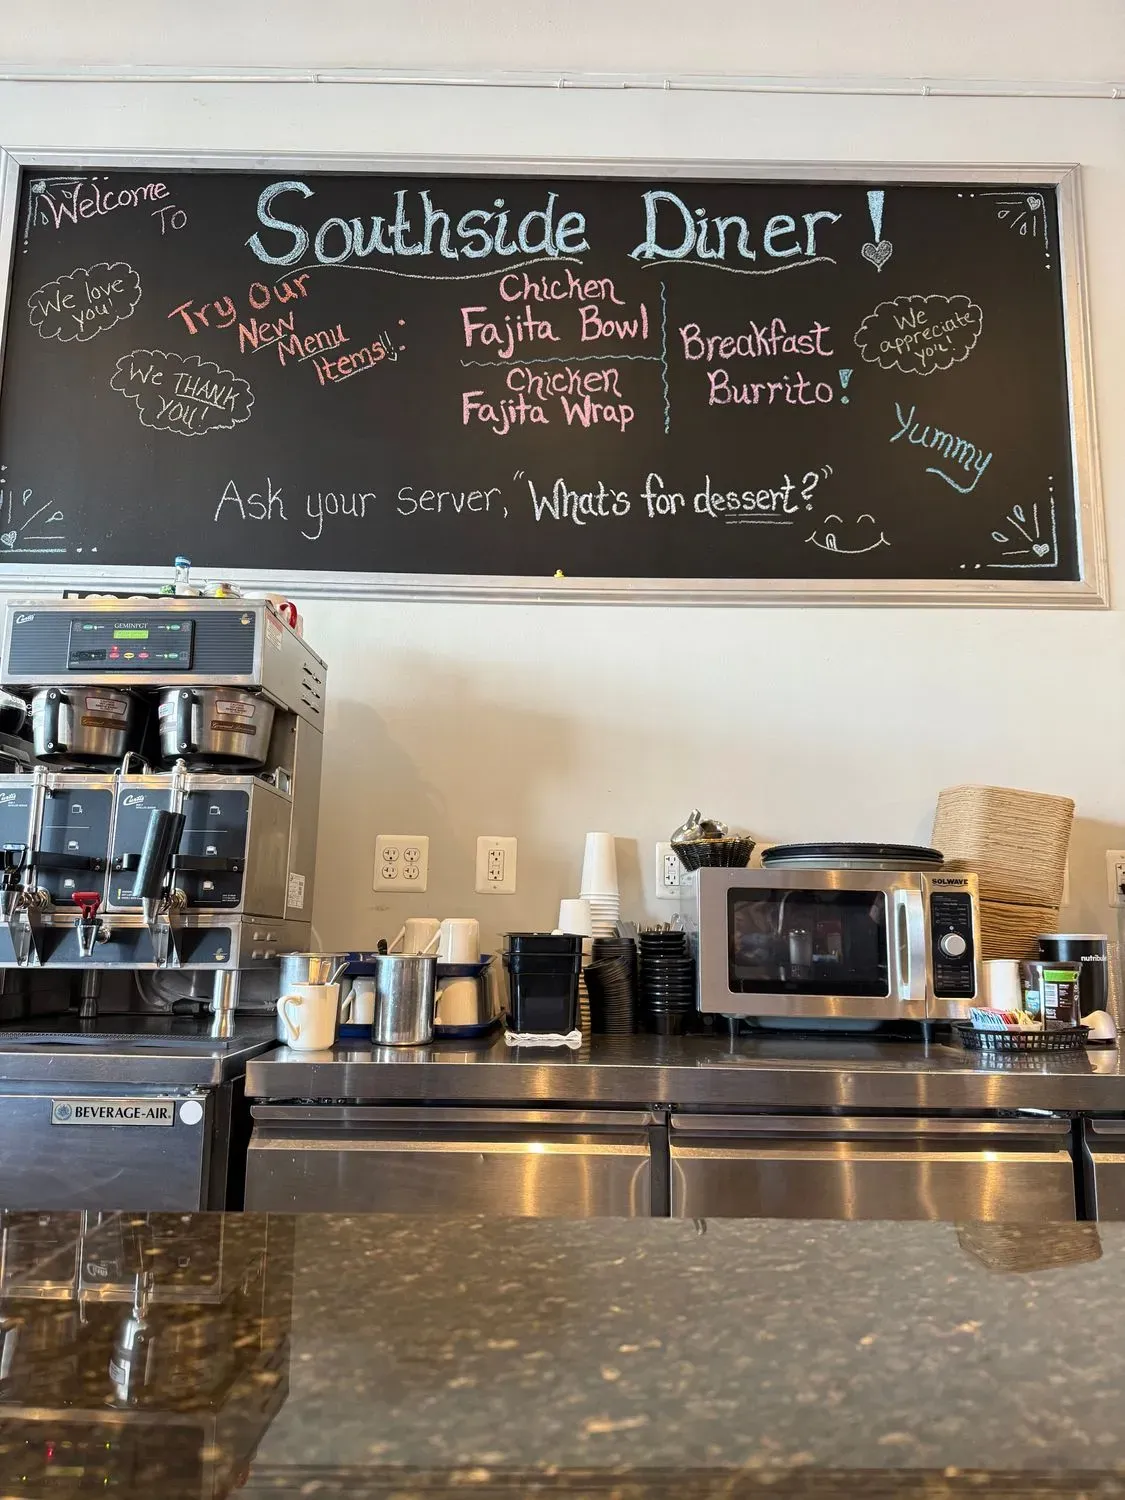 Welcome
To
Southside Diner!
We love
you!
Try Our
New
Menu
Items!!:
We THANK
YOU!
Chicken
Fajita Bowl
Chicken
Fajita Wrap
Breakfast
Burrito!
We
appreciate
you!
Yummy
Ask your server, "What's for dessert?"
Curtis
GEMINI
Curtis
Curtis
SOLWAVE
nutribul
BEVERAGE-AIR